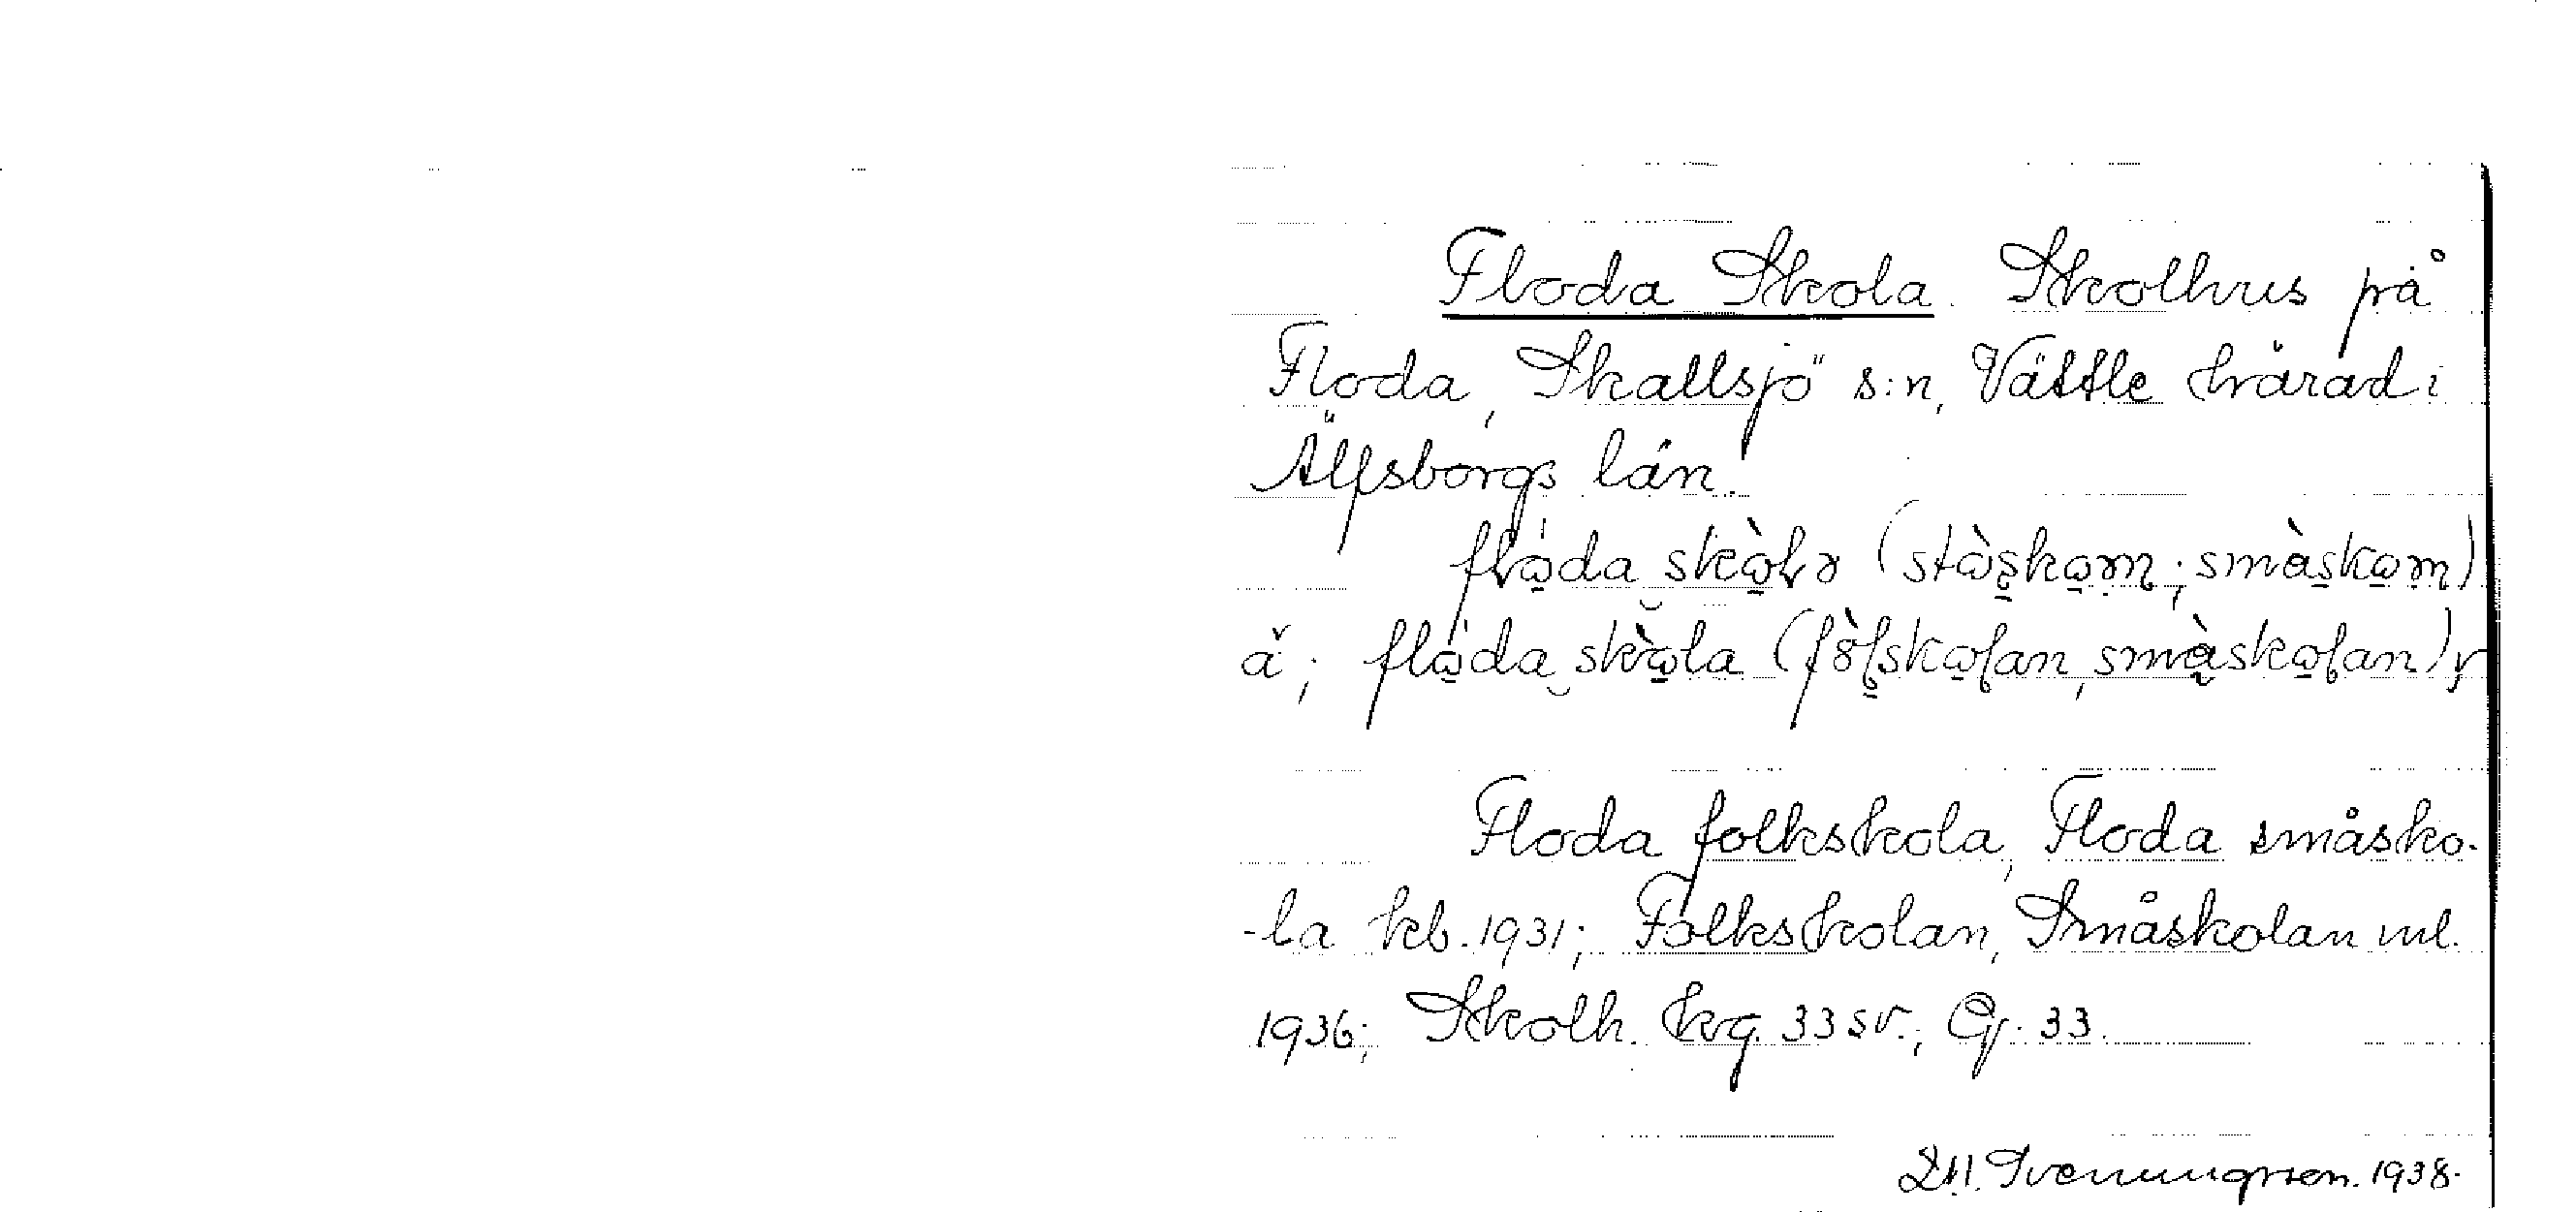 Floda Skola. Skolhus på
Floda, Skallsjö s:n, Vättle härad i
Älfsborgs län.
flὼda skὼlə (stὼskωən; småskωən)
ă; flὼda skὼla (fòlskωlan, småskωlan) y
Floda folkskola, Floda småsko-
-la kb. 1931; Folkskolan, Småskolan ml.
1936; Skolh. Ekg. 33 sv.; Gj. 33.
Svenungsson. 1938.